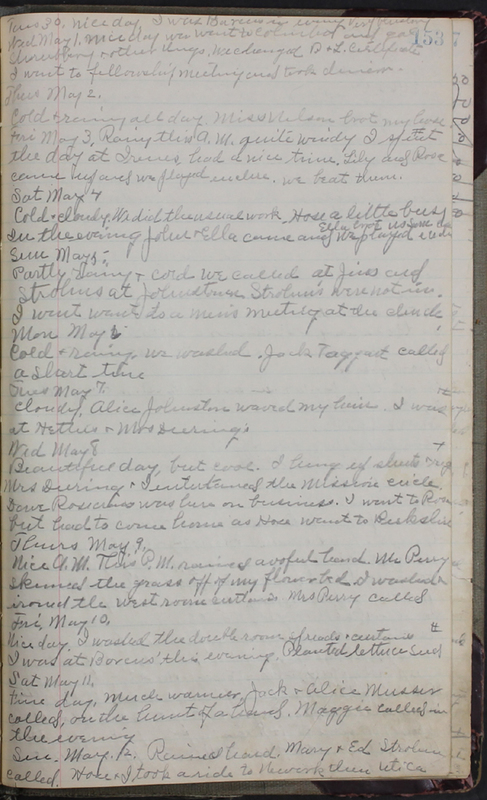 Tues 30. Nice day I was
Wed May 1. Nice day we went to Columbus and
153
+ other things. We changed B + L. Certificate
I went to fellowship meeting and took dinner.
Thurs May 2.
Cold + rainy all day. Miss Nelson
Fri May 3. Rainy this A.M. quite windy I spent
the day at Irenes, had a nice time. Lily and Rose
came up and we played euchre. We beat them.
Sat May 4
Cold + cloudy. We did the usual work. Hose a little busy
Ella
In the evening John + Ella came and we played
Sun May 5.
Partly rainy + cold we called at Jims and
Strohms at Johnstown Strohms were not in.
I went to a mens meeting at the church
Mon May 6
Cold + rainy. we washed. Jack Taggart called
a short time
Tues May 7.
Cloudy. Alice Johnston waved my hair. I was
at Hetties + Mrs Deering's
Wed May 8
Beautiful day, but cool. I hung ed sheets +
Mrs Deering + I entertained the Mission circle.
Dave was here on business. I went to
but had to come home as Hose went to
Thurs May 9.
Nice A.M. This P.M. rained awful hard. Mr Perry
skinned the grass off of my flower bed. I washed +
ironed the west room curtains Mrs Perry called
Fri. May 10,
Nice day. I washed the double room spreads + curtains
I was at this evening. Planted lettuce seed
Sat May 11.
Fine day, much warmer, Jack + Alice Musser
called, on the hunt of a hand. Maggie called in
the evening
Sun. May. 12. Rained hard Mary + Ed Strohm
called. Hose + I took a ride to Newark then Utica